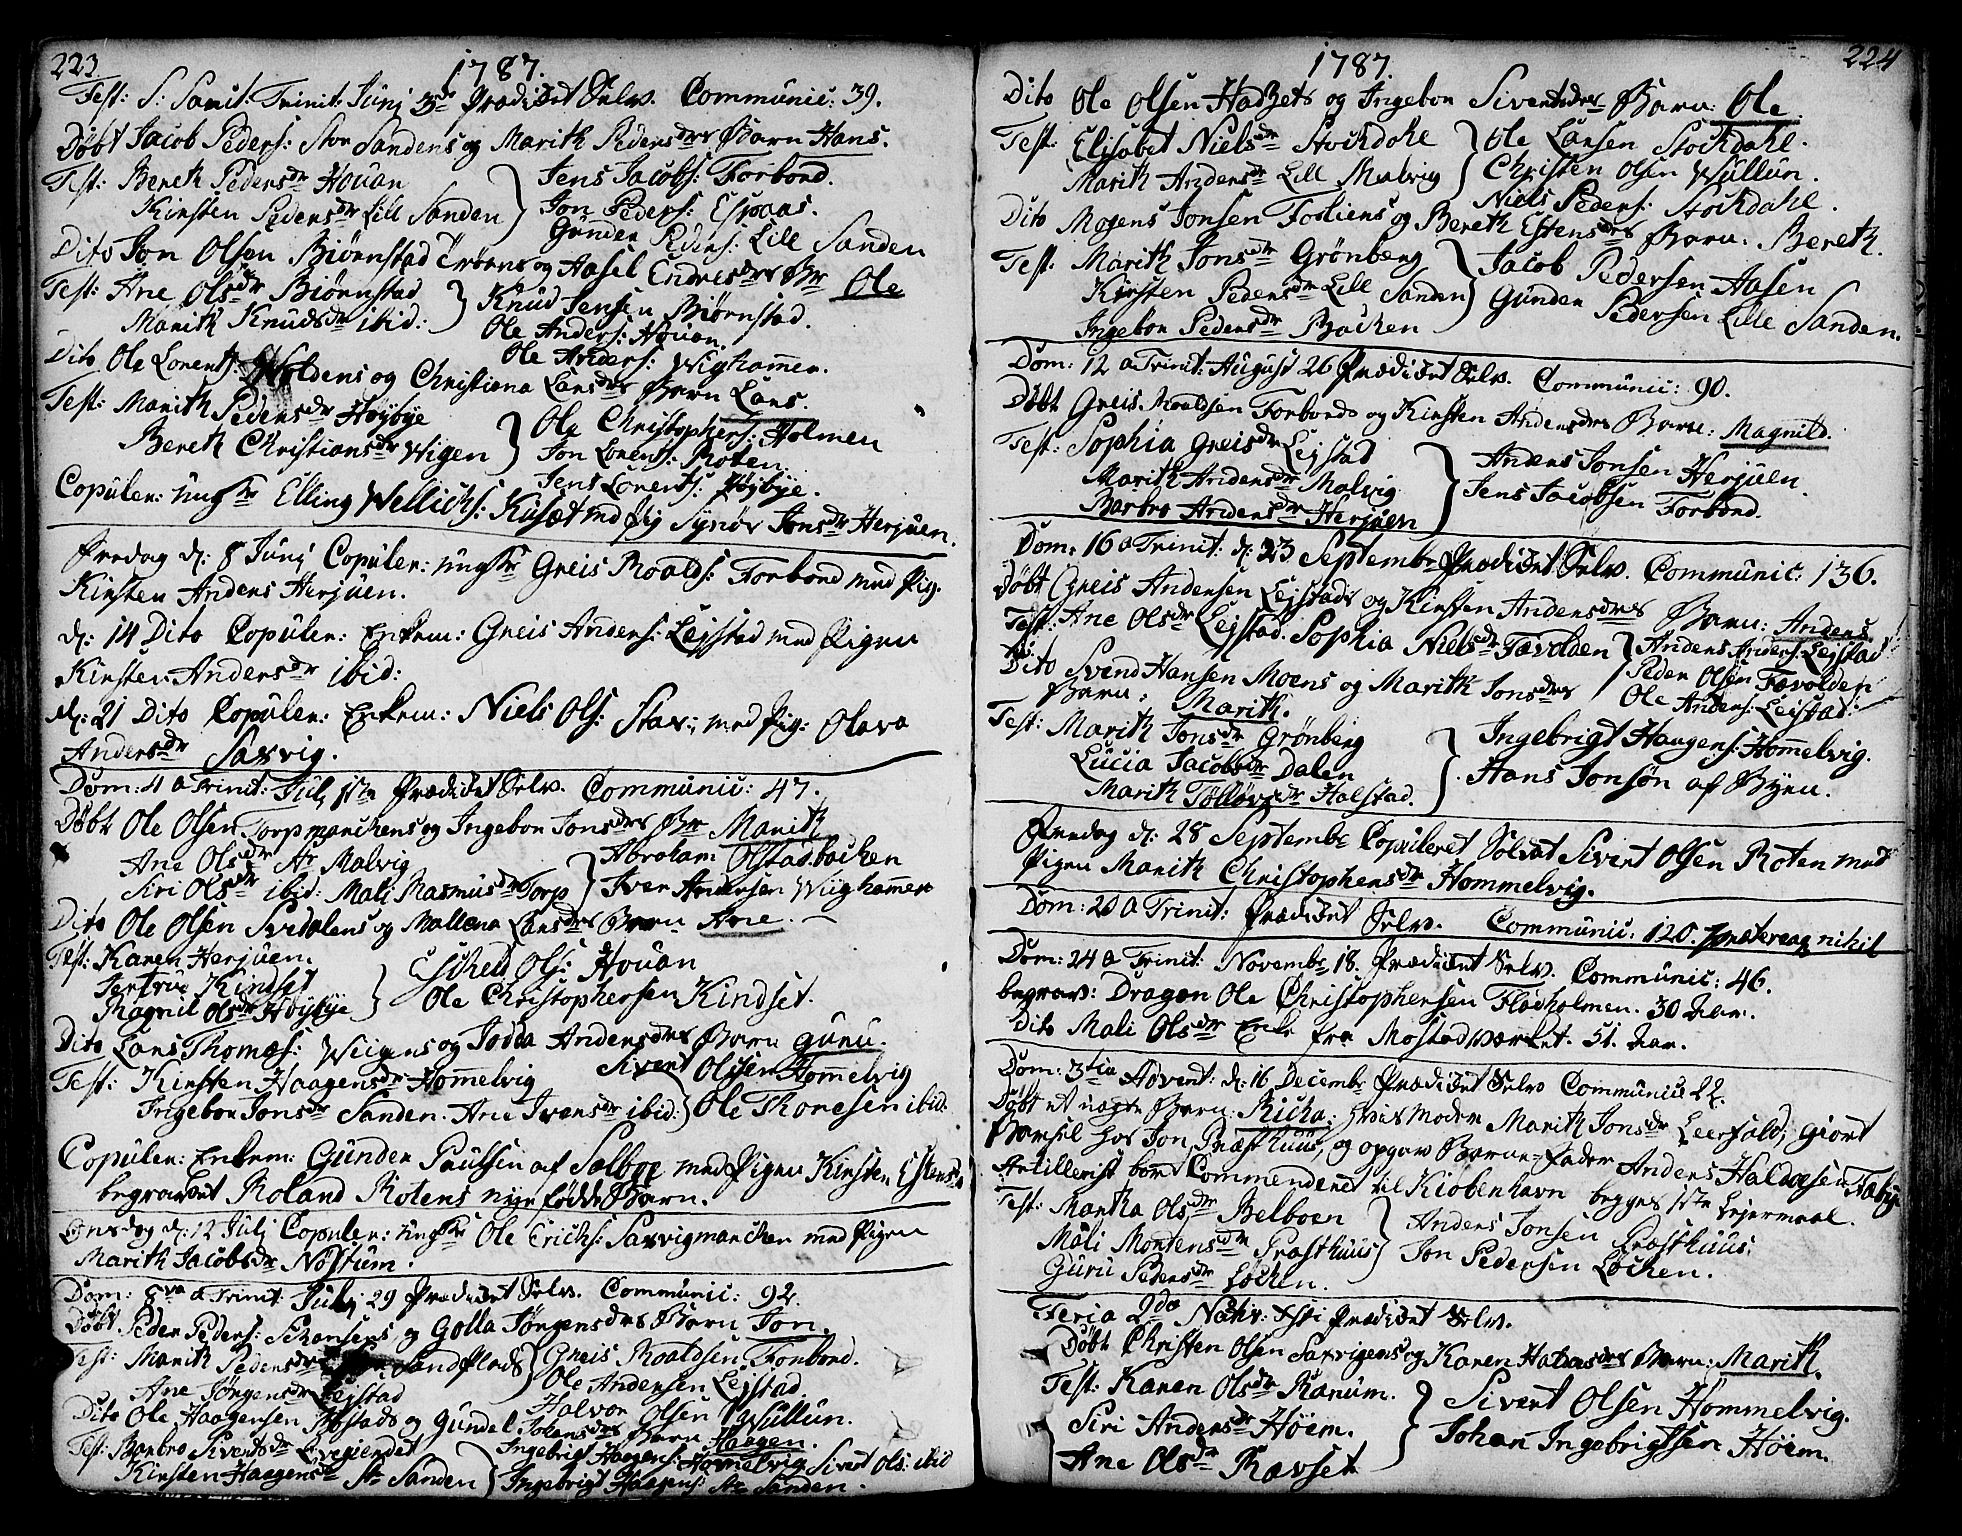 223
1787.
Fest: S: Sanct: Trinit: Junj 3die Prædicet Selv. Communic: 39.
Døbt Jacob Peders: Stor Sandens og Marith Pedersdrs Barn Hans.
Test: Bereth Pedersdr Houan
Kirsten Pedersdr Lill Sanden
Jens Jacobs: Forbord.
Jon Peders: Espaas.
Gunder Peders: Lill Sanden
Dito Jon Olsen Biørnstad og Aasel Endresdrs Br Ole
Test: Ane Olsdr Biørnstad
Marith Knudsdr ibid:
Knud Jensen Biørnstad.
Ole Anders: Houan.
Ole Anders: Wighammer.
Dito Ole Lorents: Woldens og Christiena Larsdrs Barn Lars.
Test: Marith Pedersdr Høybye
Bereth Christiansdr Wigen
Ole Christophers: Holmen
Jon Lorents: Roten
Jens Lorents: Høybye.
Copuler: ungkr Elling Wellichs: Kusæt med Pig Synøv Jonsdr Herjuen.
Fredag d: 8 Junj Copuler: ungkr Greis Roalds: Forbord med Pig.
Kirsten Anders Herjuen.
d: 14 Dito Copuler: Enkem: Greis Anders: Lejstad med Pigen
Kirsten Andersdr ibid:
d: 21 Dito Copuler: Enkem: Niels Ols: Stav: med Pig: Olava
Andersdr Saxvig.
Dom: 4 a Trinit: Julj 1ste Prædicet Selv. Communic: 47.
Døbt Ole Olsen Torpmarchens og Ingebor Jonsdrs Br Marith
Ane Olsdr St Malvig
Siri Olsdr ibid: Mali Rasmusdr Torp
Abraham Olstadbachen
Iver Andersen Wiighammer
Dito Ole Olsen Svedalens og Mallena Larsdrs Barn Ane.
Test: Karen Herjuen.
Jertru Kindset
Magnil Olsdr Høybye
Sched Ols: Houan
Ole Christophersen Kindset.
Dito Lars Thomæs: Wiigens og Jodda Andersdrs Barn guru.
Test: Kirsten Haagensdr Hommelvig
Ingebor Jonsdr Sanden. Ane Iversdr ibid:
Sivert Olssen Hommelvig
Ole Thoresen ibid:
Copuler: Enkem: Gunder Paulsen af Sælboe med Pigen Kirsten Estensdr
begravet Roland Rotens nye fødde Barn.
Onsdag d: 12 Julj Copuler: ungkr Ole Erichs: Saxvigmarchen med Pigen
Marith Jacobsdr Nøstum.
Dom: 8va a Trinit Julj 29 Prædicet Selv. Communic: 92.
Døbt Peder Peders: Schansens og Golla Jørgensdrs Barn Jon.
Test: Marith Pedersdr Sandplads
Ane Jørgensdr Lejstad
Greis Roaldsen Forbord.
Ole Andersen Lejstad
Halvor Olsen Wullun.
Dito Ole Haagensen og Gundel Johansdrs Barn Haagen.
Test: Barbro Sivertsdr
Kirsten Haagensdr St Sanden
Ingebrigt Haagens: Hommelvig Sivert Ols: ibid
Ingebrigt Haagens: St Sanden.
224
1787.
Dito Ole Olsen Hadzets og Ingebor Sivertsdrs Barn: Ole
Test: Elisabet Nielsdr Stockdahl
Marith Andersdr Lill Malvig
Ole Larsen Stockdahl.
Christen Olsen Wullun.
Niels Peders: Stockdahl.
Dito Mogens Jonsen Fostiens og Bereth Estensdrs Barn: Bereth.
Test: Marith Jonsdr Grønberg
Kirsten Pedersdr Lill Sanden
Ingebor Pedersdr Bachen
Jacob Pedersen Aasen
Gunder Pedersen Lille Sanden.
Dom: 12 a Trinit: August 26 Prædicet Selv. Communic: 90.
Døbt Greis Roaldsen Forbords og Kirsten Andersdrs Barn: Magnild.
Test: Sophia Greisdr Lejstad
Marith Andersdr Malvig
Barbro Andersdr Herjuen
Anders Jonsen Herjuen.
Jens Jacobsen Forbord.
Dom: 16 a Trinit: d: 23 Septembr Prædicet Selv. Communic: 136.
Døbt Greis Andersen Lejstads og Kirsten Andersdrs Barn: Anders
Test: Ane Olsdr Lejstad. Sophia Nielsdr Tævolden
Anders Anders: Lejstad
Peder Olsen Tævolden
Ole Anders: Lejstad.
Dito Svend Hansen Moens og Marith Jonsdrs
Barn: Marith.
Test: Marith Jonsdr Grønberg
Lucia Jacobsdr Dalen
Marith Tølløvsdr Halstad.
Ingebrigt Haagens: Hommelvig.
Hans Jonsøn af Byen.
Fredag d: 28 Septembr Copuleret Soldat Sivert Olsen Roten med
Pigen Marith Christophersdr Hommelvig.
Dom: 20 a Trinit: Prædicet Selv. Communic: 120. prætereaq nihil
Dom: 24 a Trinit: Novembr 18. Prædicet Selv. Communic: 46.
begrav: Dragon Ole Christophersen Fladholmen. 30 Aar.
Dito Mali Olsdr Enke fra Mostadværket. 51. Aar.
Dom: 3tia Advent: d: 16 Decembr Prædicet Selv Communic 22.
Døbt et uægte Barn: Richa: hvis Moder Marith Jonsdr Leerfald, giort
Barsel hos Jon Præsthuus, og opgav Barne-Fader Anders Haldosen Tæbye
Artillerist bort Commenderet til Kiøbenhavn begges 1ste Lejermaal.
Test: Martha Olsdr Belboen
Mali Mortensdr Præsthuus
Guru Pedersdr Løchen.
Anders Jonsen Præsthuus.
Jon Pedersen Løchen.
Feria 2da Nativ: Xsti Prædicet Selv.
Døbt Christen Olsen Saxvigens og Karen Halvorsdrs Barn: Marith.
Test: Karen Olsdr Ranum.
Siri Andersdr Høem.
Ane Olsdr Ravset
Sivert Olsen Hommelvig.
Johan Ingebrigtsen Høem.